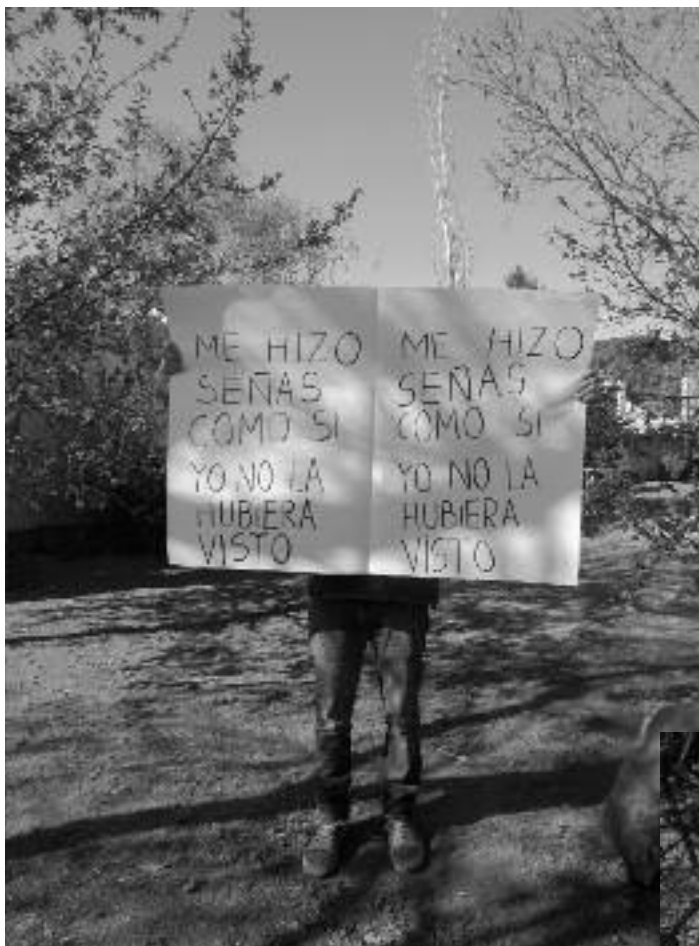 ME HIZO
SEÑAS
COMO SI
YO NO LA
HUBIERA
VISTO
ME HIZO
SEÑAS
COMO SI
YO NO LA
HUBIERA
VISTO